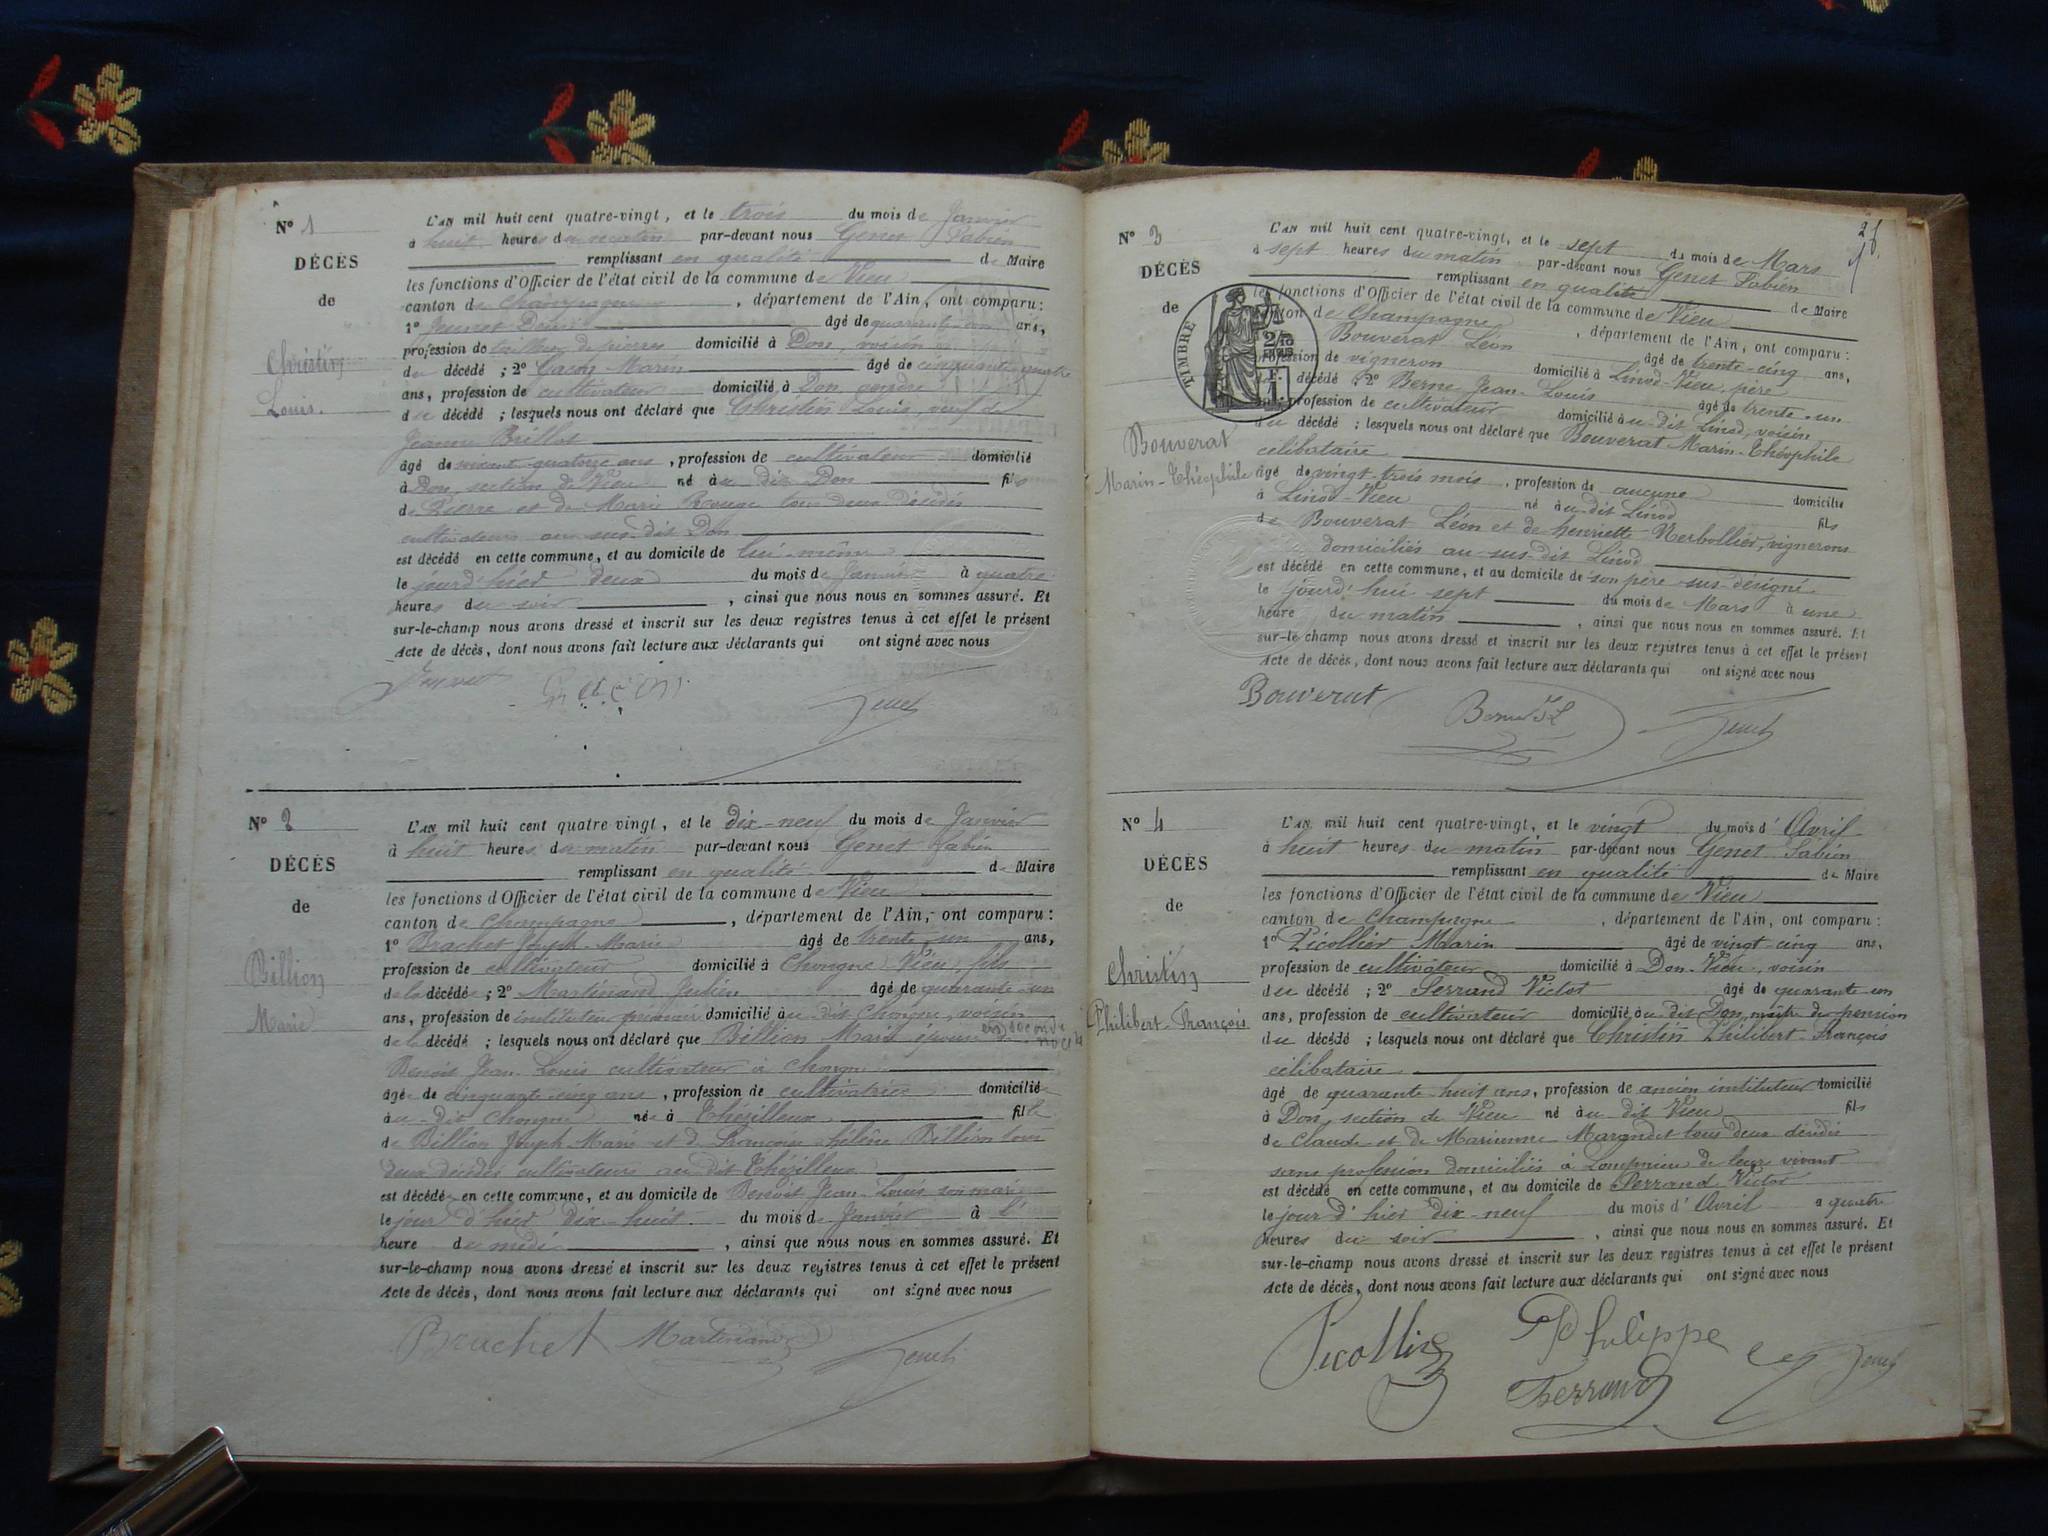 N° 1
DÉCÈS
de
Christin
Louis.
L'AN mil huit cent quatre-vingt, et le trois du mois de Janvier
à huit heures du matin par-devant nous Genet Fabien
remplissant en qualité de Maire
les fonctions d'Officier de l'état civil de la commune de Vieu
canton de Champagne, département de l'Ain, ont comparu :
1° Denis âgé de quarante ans,
profession de tailleur de pierres domicilié à Don, voisin
du décédé ; 2° Marin âgé de cinquante quatre
ans, profession de cultivateur domicilié à Don, gendre
du décédé ; lesquels nous ont déclaré que Christin Louis, veuf de
Jeanne Brillat
âgé de soixante quatorze ans, profession de cultivateur domicilié
à Don section de Vieu né à u dit Don fils
de Pierre et de Marie Rouge tous deux décédés
cultivateurs au sus-dit Don
est décédé en cette commune, et au domicile de lui-même
le jourd'hier deux du mois de Janvier à quatre
heures du soir, ainsi que nous nous en sommes assuré. Et
sur-le-champ nous avons dressé et inscrit sur les deux registres tenus à cet effet le présent
Acte de décès, dont nous avons fait lecture aux déclarants qui ont signé avec nous
Genet
N° 2
DÉCÈS
de
Billion
Marie
L'AN mil huit cent quatre vingt, et le dix-neuf du mois de Janvier
à huit heures du matin par-devant nous Genet Fabien
remplissant en qualité de Maire
les fonctions d'Officier de l'état civil de la commune de Vieu
canton de Champagne, département de l'Ain, ont comparu :
1° Brachet Joseph-Marie âgé de trente-un ans,
profession de cultivateur domicilié à Chongne Vieu, fils
de la décédée ; 2° Martinand Julien âgé de quarante-un
ans, profession de instituteur primaire domicilié à u dit Chongne, voisin
de la décédé ; lesquels nous ont déclaré que Billion Marie épouse en seconde noces
Benoit Jean-Louis cultivateur à Chongne
âgée de cinquante-cinq ans, profession de cultivatrice domiciliée
à u-dit Chongne née à Thézillieu fille
de Billion Joseph-Marie et de Françoise Hélène Billion tous
deux décédés cultivateurs au dit Thézillieu
est décédée en cette commune, et au domicile de Benoit Jean-Louis son mari
le jour d'hier dix-huit du mois de Janvier à l'
heure de midi, ainsi que nous nous en sommes assuré. Et
sur-le-champ nous avons dressé et inscrit sur les deux registres tenus à cet effet le présent
Acte de décès, dont nous avons fait lecture aux déclarants qui ont signé avec nous
Brachet Martinand Genet
N° 3
DÉCÈS
de
Bouverat
Marin-Théophile
TIMBRE
L'AN mil huit cent quatre-vingt, et le sept du mois de Mars
à sept heures du matin par-devant nous Genet Fabien
remplissant en qualité de Maire
les fonctions d'Officier de l'état civil de la commune de Vieu
canton de Champagne, département de l'Ain, ont comparu :
Bouverat Léon âgé de trente-cinq ans,
profession de vigneron domicilié à Linod-Vieu, père
décédé ; 2° Berne Jean-Louis âgé de trente-un
profession de cultivateur domicilié à u-dit Linod, voisin
du décédé ; lesquels nous ont déclaré que Bouverat Marin-Théophile
célibataire
âgé de vingt-trois mois, profession de aucune domicilié
à Linod-Vieu né à u dit Linod fils
de Bouverat Léon et de henriette Nerbollier, vignerons
domiciliés au sus-dit Linod
est décédé en cette commune, et au domicile de son père sus-désigné
le jourd'hui sept du mois de Mars à une
heure du matin, ainsi que nous nous en sommes assuré. Et
sur-le champ nous avons dressé et inscrit sur les deux registres tenus à cet effet le présent
Acte de décès, dont nous avons fait lecture aux déclarants qui ont signé avec nous
Bouverat Berne J L Genet
N° 4
DÉCÈS
de
Christin
Philibert-François
L'AN mil huit cent quatre-vingt, et le vingt du mois d'Avril
à huit heures du matin par-devant nous Genet Fabien
remplissant en qualité de Maire
les fonctions d'Officier de l'état civil de la commune de Vieu
canton de Champagne, département de l'Ain, ont comparu :
1° Picollier Marin âgé de vingt-cinq ans,
profession de cultivateur domicilié à Don-Vieu, voisin
du décédé ; 2° Serrand Victor âgé de quarante un
ans, profession de cultivateur domicilié à u dit Don, maître de pension
du décédé ; lesquels nous ont déclaré que Christin Philibert-François
célibataire
âgé de quarante-huit ans, profession de ancien instituteur domicilié
à Don, section de Vieu né à u dit Vieu fils
de Claude et de Marianne Marandet tous deux décédés
sans profession domiciliés à Lompnieu de leur vivant
est décédé en cette commune, et au domicile de Serrand Victor
le jour d'hier dix-neuf du mois d'Avril à quatre
heures du soir, ainsi que nous nous en sommes assuré. Et
sur-le-champ nous avons dressé et inscrit sur les deux registres tenus à cet effet le présent
Acte de décès, dont nous avons fait lecture aux déclarants qui ont signé avec nous
Philippe
Genet